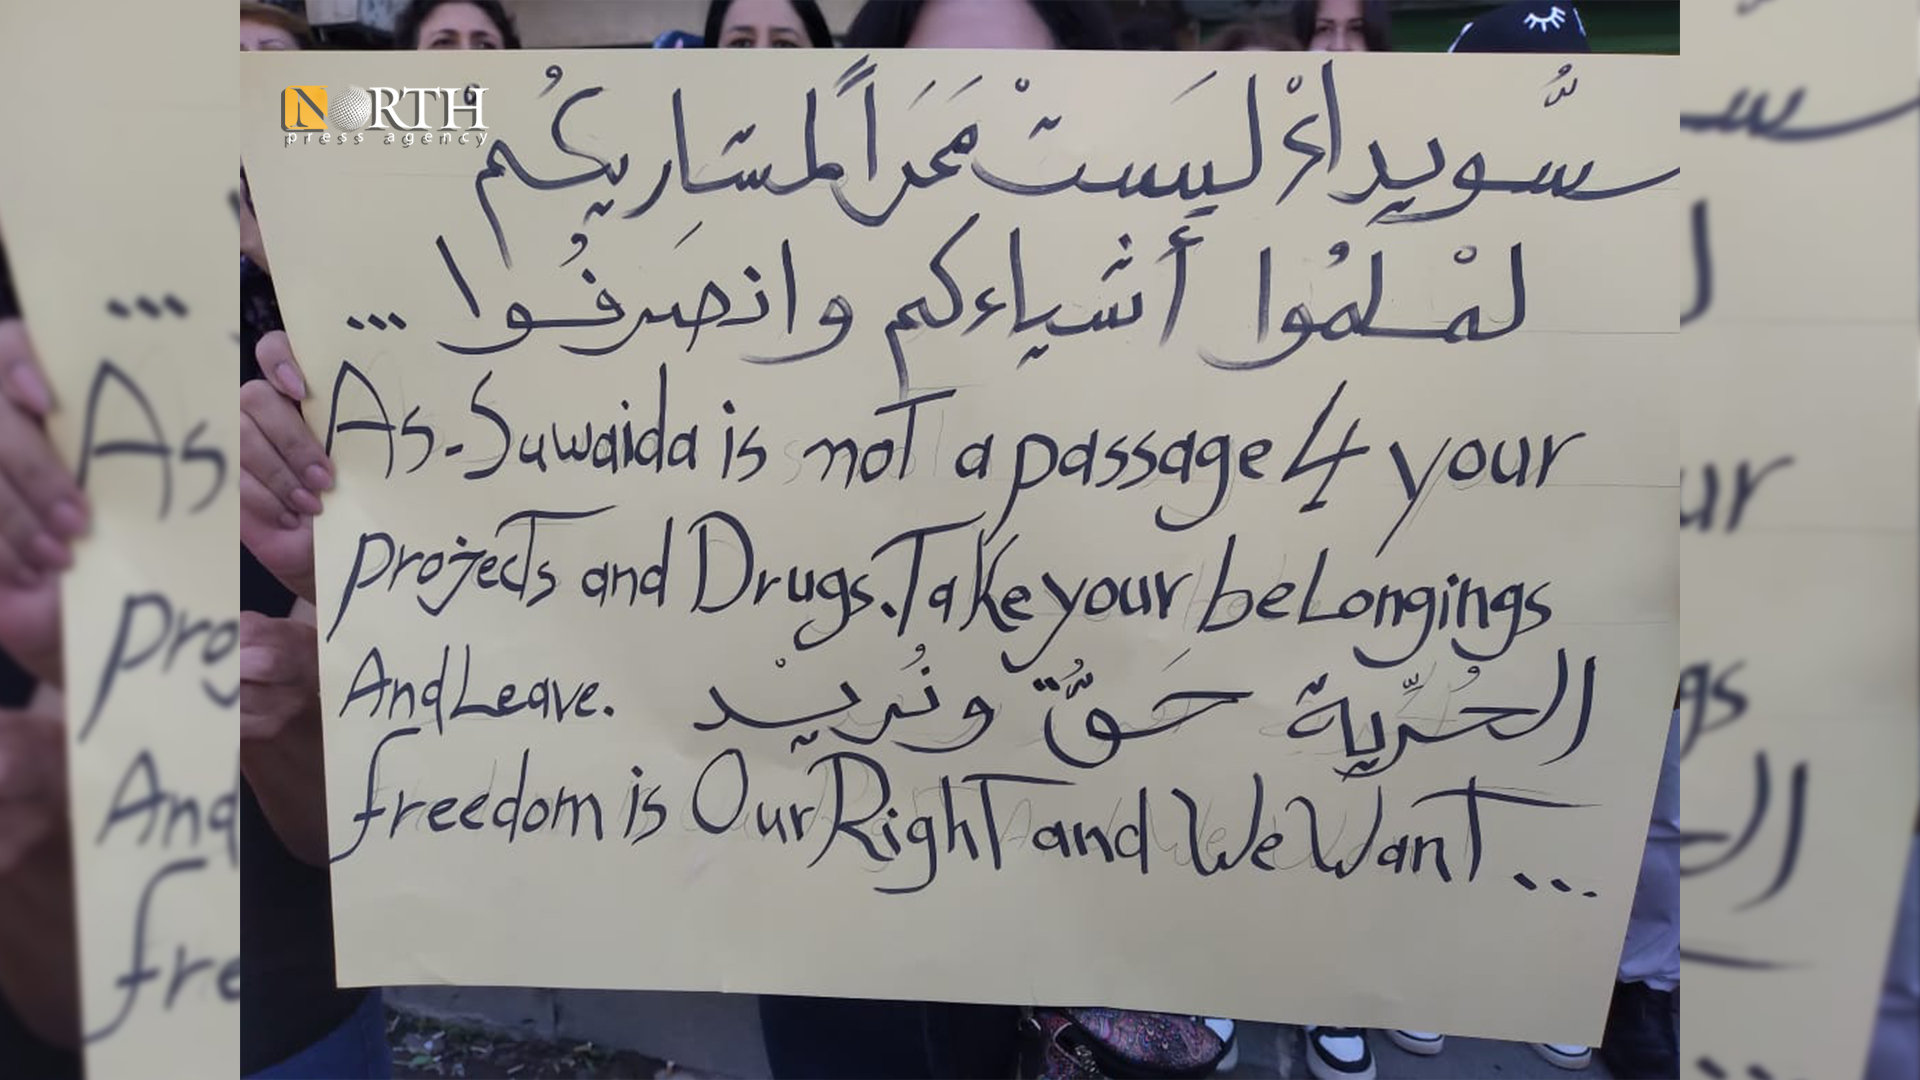 NORTH
press agency
سُّويداءْ ليَستْ مَمَراً لمشَاريكُمْ
لمْلمُوا أشياءكم وانصَرفُوا ...
As-Suwaida is not a passage 4 your
projects and Drugs. Take your beLongings
And Leave.
الحُرِّية حَقٌّ ونُريدْ
freedom is Our Right and We Want ...